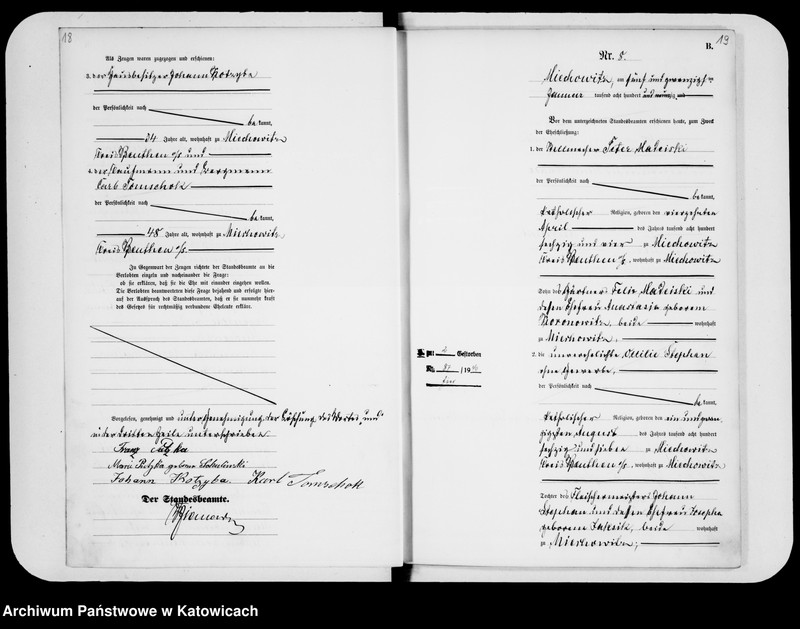 18
Als Zeugen waren zugezogen und erschienen:
3. der Hausbesitzer Johann Kotzyba
der Persönlichkeit nach
be kannt,
34 Jahre alt, wohnhaft zu Miechowitz
Kreis Beuthen o/s und
4. der Kaufmann und
Karl Tomschok
der Persönlichkeit nach
be kannt,
48 Jahre alt, wohnhaft zu Miechowitz
Kreis Beuthen o/s.
In Gegenwart der Zeugen richtete der Standesbeamte an die
Verlobten einzeln und nacheinander die Frage:
ob sie erklären, daß sie die Ehe mit einander eingehen wollen.
Die Verlobten beantworteten diese Frage bejahend und erfolgte hier-
auf der Ausspruch des Standesbeamten, daß er sie nunmehr kraft
des Gesetzes für rechtmäßig verbundene Eheleute erkläre.
Vorgelesen, genehmigt und unter Genehmigung der Löschung des Wortes „und“
in der dritten Zeile unterschrieben
Franz
Marie geborene
Johann Kotzyba. Karl Tomschok
Der Standesbeamte.
19
B.
Nr. 8.
Miechowitz, am fünf und zwanzigsten
Januar tausend acht hundert und neunzig
Vor dem unterzeichneten Standesbeamten erschienen heute, zum Zweck
der Eheschließung:
1. der Stellmacher Peter Mateiski
der Persönlichkeit nach
be kannt,
katholischer Religion, geboren den vierzehnten
April des Jahres tausend acht hundert
sechzig und vier zu Miechowitz
Kreis Beuthen o/s, wohnhaft zu Miechowitz
Sohn des Gärtners Felix Mateiski und
dessen Ehefrau Anastasia geborenen
beide wohnhaft
zu Miechowitz.
Gestorben
2. die unverehelichte Cecilie Stephan
ohne Gewerbe,
der Persönlichkeit nach
be kannt,
katholischer Religion, geboren den ein und zwan-
zigsten August des Jahres tausend acht hundert
sechzig und sieben zu Miechowitz
Kreis Beuthen o/s, wohnhaft zu Miechowitz
Tochter des Fleischermeisters Johann
Stephan und dessen Ehefrau Josepha
geborenen beide wohnhaft
zu Miechowitz,
Archiwum Państwowe w Katowicach